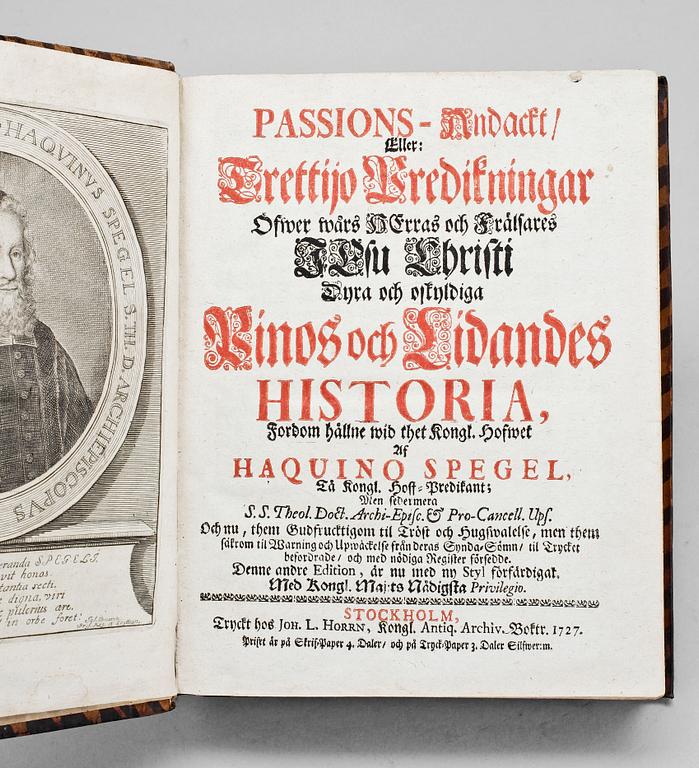 HAQVINVS SPEGEL S. TH. D. ARCHIEPISCOPVS
eranda SPEGELI
vit honos.
tantia recti.
digna, viri
pulcrius ære.
in orbe foret!
PASSIONS-Andackt/
Eller:
Trettijo Predikningar
Öfwer wårs HErras och Frälsares
JEsu Christi
Dyra och oskyldiga
Pinos och Lidandes
HISTORIA,
Fordom hållne wid thet Kongl. Hofwet
Af
HAQUINO SPEGEL,
Tå Kongl. Hoff-Predikant;
Men sedermera
S.S. Theol. Doct. Archi-Episc. & Pro-Cancell. Ups.
Och nu, them Gudfrucktigom til Tröst och Hugswalelse, men them
säkrom til Warning och Upwäckelse från deras Synda-Sömn/ til Trycket
befordrade/ och med nödiga Register försedde.
Denne andre Edition, är nu med ny Styl förfärdigat.
Med Kongl. Maj:ts Nådigsta Privilegio.
STOCKHOLM,
Tryckt hos JOH. L. HORRN, Kongl. Antiq. Archiv. Boktr. 1727.
Priset är på Skrif-Paper 4. Daler/ och på Tryck-Paper 3. Daler Silfwer:m.